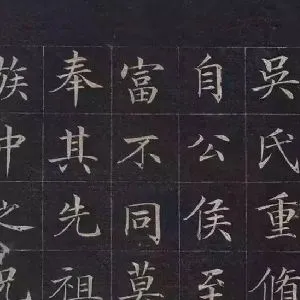 吳氏重脩
自公侯至
富不同莫
奉其先祖
族中之況